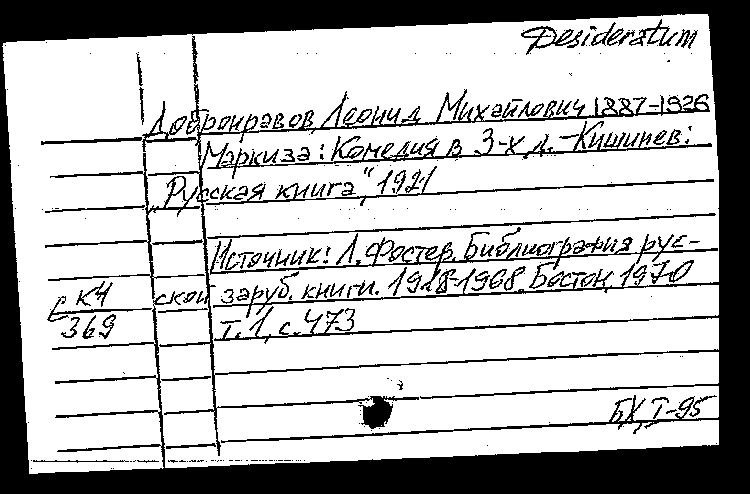 Desideratum
Добронравов, Леонид Михайлович 1887-1926
Маркиза: Комедия в 3-х д. - Кишинев:
„Русская книга", 1921
Источник: Л. Фостер. Библиография рус-
ской заруб. книги. 1918-1968. Бостон, 1970
т. 1, с. 473
К4
369
БХ, I-95